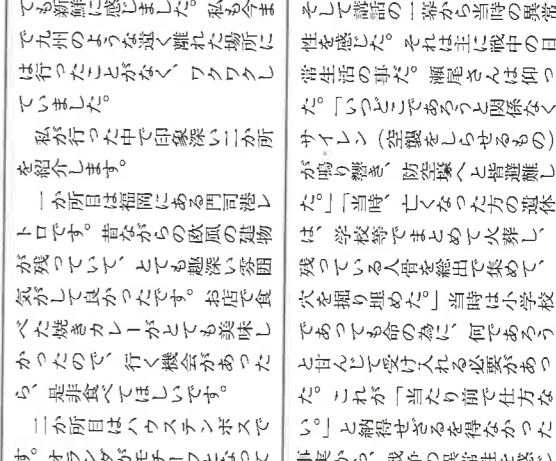 ても新鮮に感じました。私も今ま
で九州のような遠く離れた場所に
は行ったことがなく、ワクワクし
ていました。
私が行った中で印象深い二か所
を紹介します。
一か所目は福岡にある門司港レ
トロです。昔ながらの欧風の建物
が残っていて、とても趣深い雰囲
気がして良かったです。お店で食
べた焼きカレーがとても美味し
かったので、行く機会があった
ら、是非食べてほしいです。
二か所目はハウステンボスで
す。オランダがモチーフとなって
そして講話の一幕から当時の異常
性を感じた。それは主に戦中の日
常生活の事だ。瀬尾さんは仰っ
た。「いつどこであろうと関係なく
サイレン(空襲をしらせるもの)
が鳴り響き、防空壕へと皆避難し
た。」「当時、亡くなった方の遺体
は、学校等でまとめて火葬し、
残っている人骨を総出で集めて、
穴を掘り埋めた。」当時は小学校
であっても命の為に、何であろう
と甘んじて受け入れる必要があっ
た。これが「当たり前で仕方な
い。」と納得せざるを得なかった
事実から、戦争の異常性を感じ